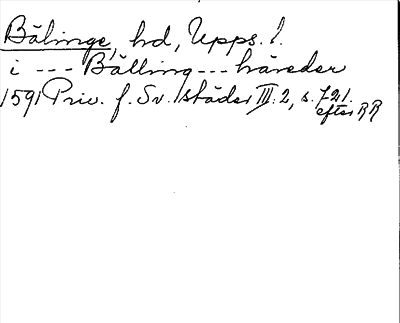 Bälinge, hd, Upps. l.
i --- Bälling --- häreder
1591 Priv. f. Sv. städer III. 2, s. 721.
efter RR